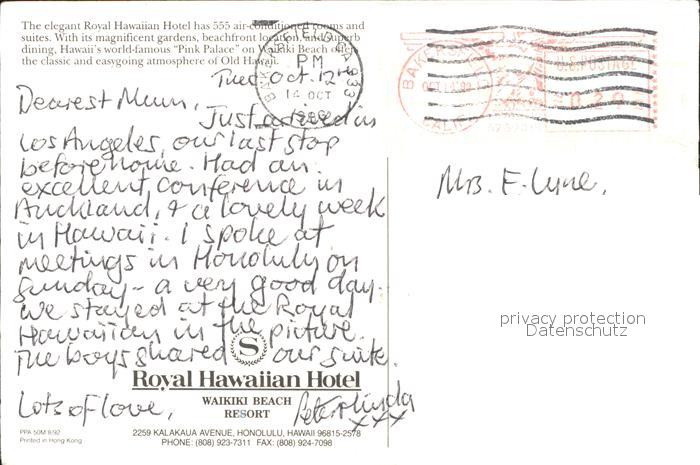 The elegant Royal Hawaiian Hotel has 555 air-conditioned rooms and
suites. With its magnificent gardens, beachfront location, and superb
dining, Hawaii's world-famous "Pink Palace" on Waikiki Beach offers
the classic and easygoing atmosphere of Old Hawaii.
PM
14 OCT
1992
BAKERSFIELD
OCT 14 '92
CALIF
U.S. POSTAGE
Tues Oct. 12th
Dearest Mum,
Just arrived in
Los Angeles, our last stop
before home. Had an
excellent conference in
Auckland, & a lovely week
in Hawaii. I spoke at
meetings in Honolulu on
Sunday - a very good day.
We stayed at the Royal
Hawaiian in the picture.
The boys shared our suite.
Lots of love,
Peter & Linda
xxx
Mrs. F. Lyne,
privacy protection
Datenschutz
S
Royal Hawaiian Hotel
WAIKIKI BEACH
RESORT
2259 KALAKAUA AVENUE, HONOLULU, HAWAII 96815-2578
PHONE: (808) 923-7311 FAX: (808) 924-7098
PPA 50M 8/92
Printed in Hong Kong